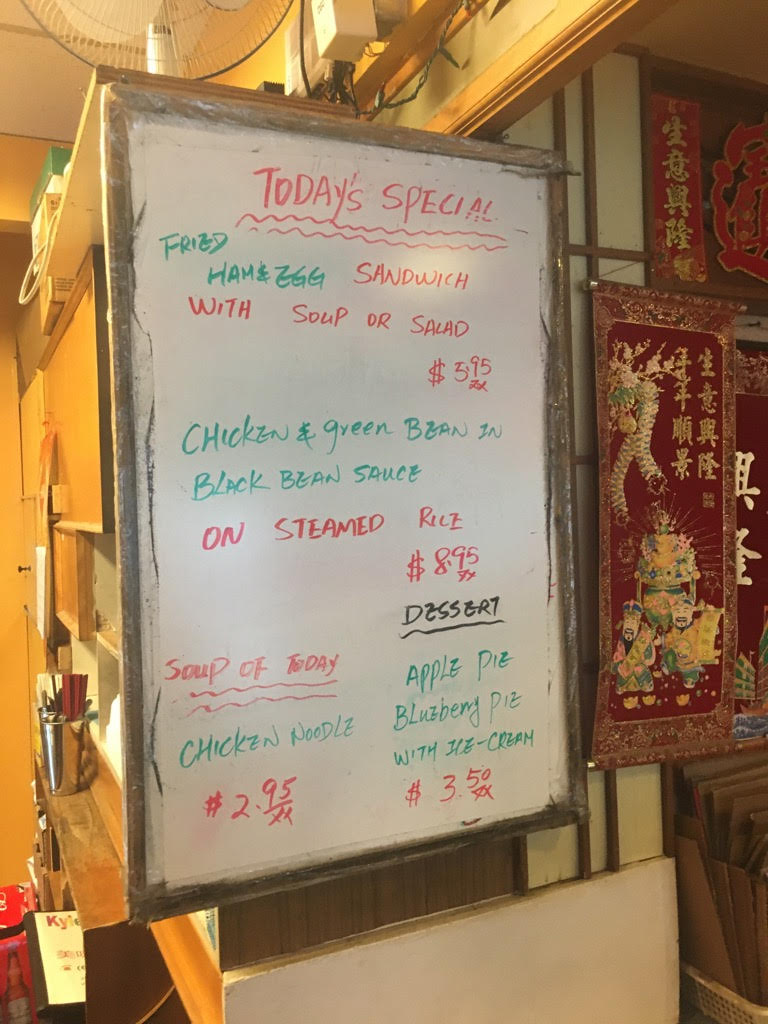 TODAY'S SPECIAL
FRIED
HAM & EGG SANDWICH
WITH SOUP OR SALAD
$ 5.95
xx
CHICKEN & green BEAN IN
BLACK BEAN SAUCE
ON STEAMED RICE
$ 8.95
xx
DESSERT
APPLE PIE
BLUEberry PIE
WITH ICE-CREAM
$ 3.50
xx
SOUP OF TODAY
CHICKEN NOODLE
$ 2.95
xx
生意興隆
生意興隆
年年順景
興隆
Kyle